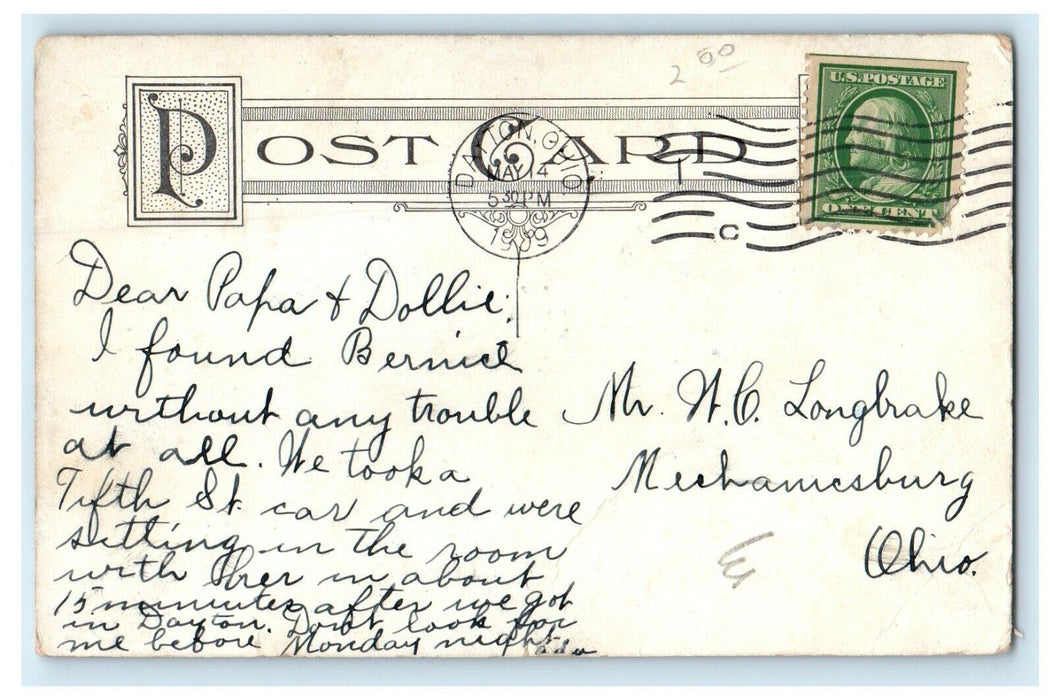 2 00
U.S. POSTAGE
ONE CENT
POST CARD
DAYTON, OHIO
MAY 14
5 30 PM
1909
C
Dear Papa & Dollie:
I found Bernice
without any trouble
at all. We took a
Fifth St. car and were
sitting in the room
with her in about
15 minutes after we got
in Dayton. Don't look for
me before Monday night.
Mr. W. C. Longbrake
Mechanicsburg
Ohio.